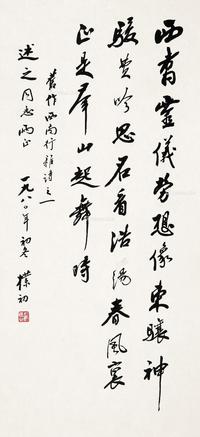 西当灵仪劳想像东骧神
骏费吟思君看浩荡春风里
正是群山起舞时
旧作西南行杂诗之一
述之同志两正
一九八〇年初冬 朴初